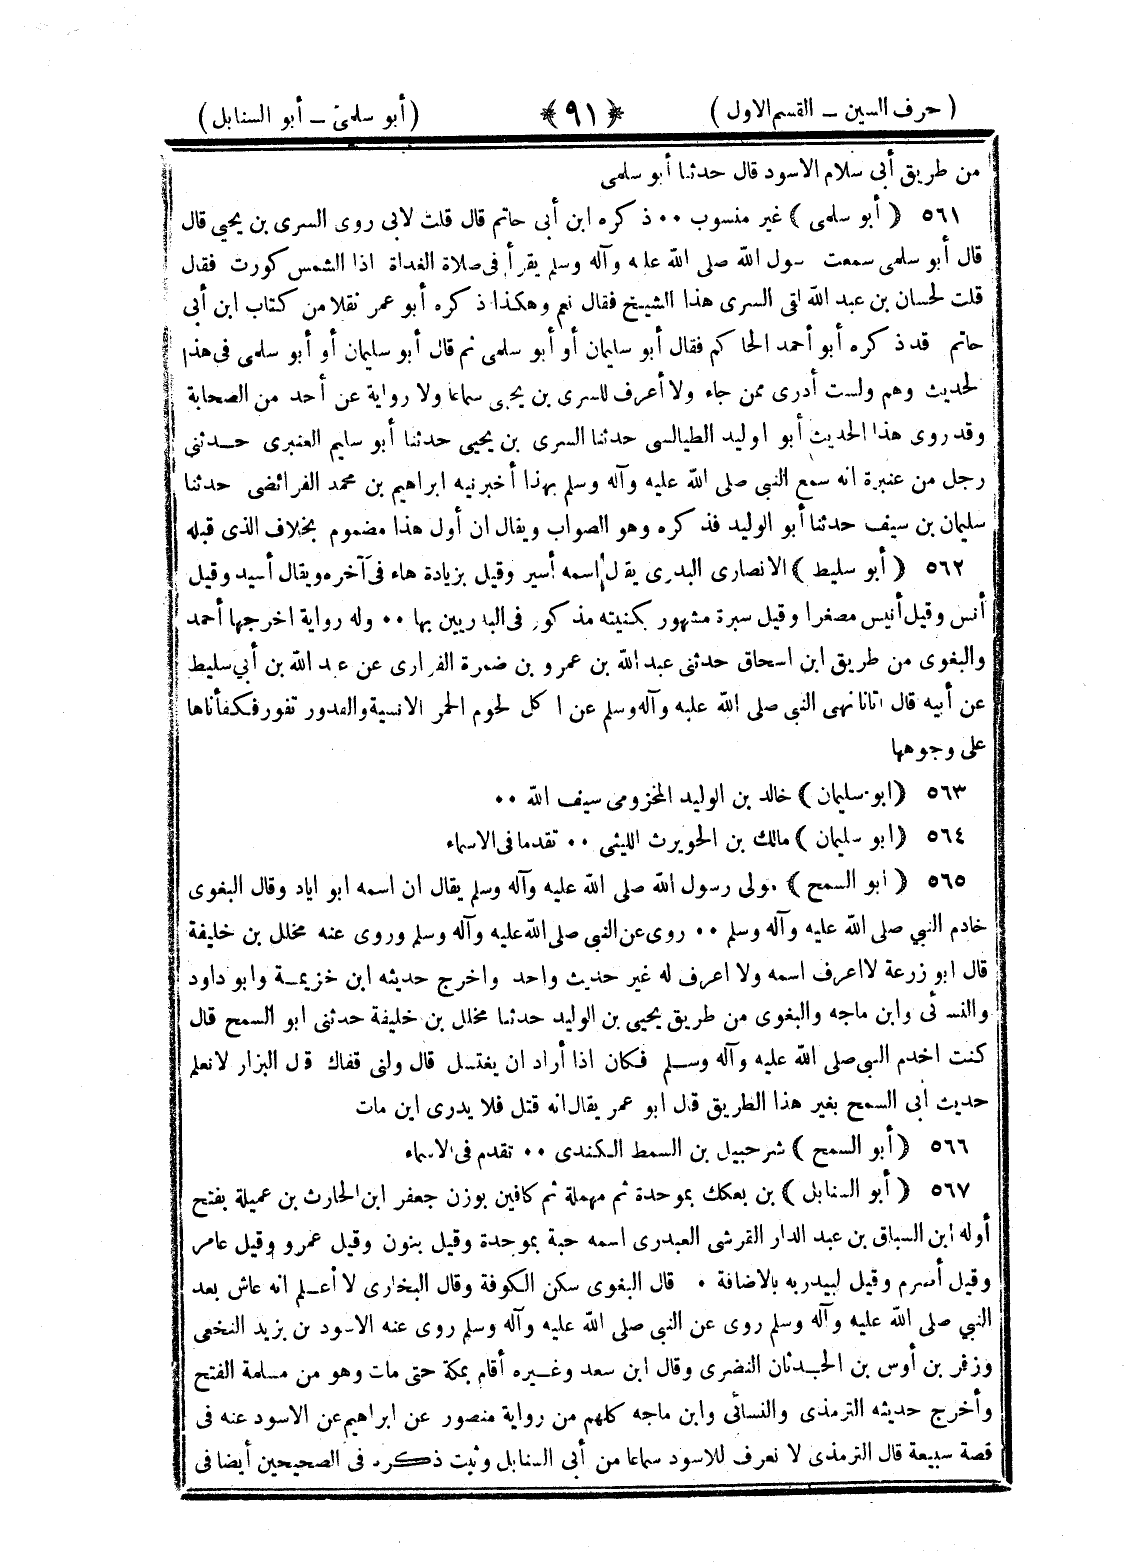 ( حرف السين ــ القسم الاول ) ﴿٩١﴾ ( أبو سلمى ــ أبو السنابل )
من طريق أبى سلام الاسود قال حدثنا أبو سلمى
٥٦١ ﴿ أبو سلمى ﴾ غير منسوب ٠٠ ذكره ابن أبى حاتم قال قلت لابى روى السرى بن يحيي قال
قال أبو سلمى سمعت سول الله صلى الله عليه وآله وسلم يقرأ فى صلاة الغداة اذا الشمس كورت فقال
قلت لحسان بن عبد الله لقى السرى هذا الشيخ فقال نعم وهكذا ذكره أبو عمر نقلا من كتاب ابن أبى
حاتم قد ذكره أبو أحمد الحاكم فقال أبو سليمان أو أبو سلمى ثم قال أبو سليمان أو أبو سلمى فى هذا
لحديث وهم ولست أدرى ممن جاء ولا أعرف للسرى بن يحيى سماعا ولا رواية عن أحد من الصحابة
وقد روى هذا الحديث أبو اوليد الطيالسى حدثنا السرى بن يحيي حدثنا أبو سليم العنبرى حـدثني
رجل من عنبرة انه سمع النبي صلى الله عليه وآله وسلم بهذا أخبرنيه ابراهيم بن محمد الفرائضى حدثنا
سليمان بن سيف حدثنا أبو الوليد فذكره وهو الصواب ويقال ان أول هذا مضموم بخلاف الذى قبله
٥٦٢ ﴿ أبو سليط ﴾ الانصارى البدرى يقال اسمه أسير وقيل بزيادة هاء فى آخره ويقال أسيد وقيل
أنس وقيل أنيس مصغرا وقيل سبرة مشهور بكنيته مذكور فى البدريين بها ٠٠ وله رواية اخرجها أحمد
والبغوى من طريق ابن اسحاق حدثنى عبد الله بن عمرو بن ضمرة الفرارى عن عبد الله بن أبي سليط
عن أبيه قال اتانا نهى النبي صلى الله عليه وآله وسلم عن اكل لحوم الحمر الانسية والقدور تفور فكفأناها
على وجوهها
٥٦٣ ﴿ ابو سليمان ﴾ خالد بن الوليد المخزومى سيف الله ٠٠
٥٦٤ ﴿ ابو سليمان ﴾ مالك بن الحويرث الليثى ٠٠ تقدما فى الاسماء
٥٦٥ ﴿ ابو السمح ﴾ مولى رسول الله صلى الله عليه وآله وسلم يقال ان اسمه ابو اياد وقال البغوى
خادم النبي صلى الله عليه وآله وسلم ٠٠ روى عن النبي صلى الله عليه وآله وسلم وروى عنه مخلل بن خليفة
قال ابو زرعة لا اعرف اسمه ولا اعرف له غير حديث واحد واخرج حديثه ابن خزيمـة وابو داود
والنسائى وابن ماجه والبغوى من طريق يحيي بن الوليد حدثنا مخلل بن خليفة حدثنى ابو السمح قال
كنت اخدم النبي صلى الله عليه وآله وسـلم فكان اذا أراد ان يغتسل قال ولنى قفاك قال البزار لا نعلم
حديث ابى السمح بغير هذا الطريق قال ابو عمر يقال انه قتل فلا يدرى اين مات
٥٦٦ ﴿ أبو السمح ﴾ شرحبيل بن السمط الكندى ٠٠ تقدم فى الاسماء
٥٦٧ ﴿ أبو السنابل ﴾ بن بعكك بموحدة ثم مهملة ثم كافين بوزن جعفر ابن الحارث بن عميلة بفتح
أوله ابن السباق بن عبد الدار القرشى العبدرى اسمه حبة بموحدة وقيل بنون وقيل عمرو وقيل عامر
وقيل أصرم وقيل لبيدربه بالاضافة ٠ قال البغوى سكن الكوفة وقال البخارى لا أعـلم انه عاش بعد
النبي صلى الله عليه وآله وسلم روى عن النبي صلى الله عليه وآله وسلم روى عنه الاسود بن يزيد النخعى
وزفر بن أوس بن الحـدثان النضرى وقال ابن سعد وغـيره أقام بمكة حتى مات وهو من مسلمة الفتح
وأخرج حديثه الترمذى والنسائى وابن ماجه كلهم من رواية منصور عن ابراهيم عن الاسود عنه فى
قصة سبيعة قال الترمذى لا نعرف للاسود سماعا من أبى السنابل وثبت ذكره فى الصحيحين أيضا فى